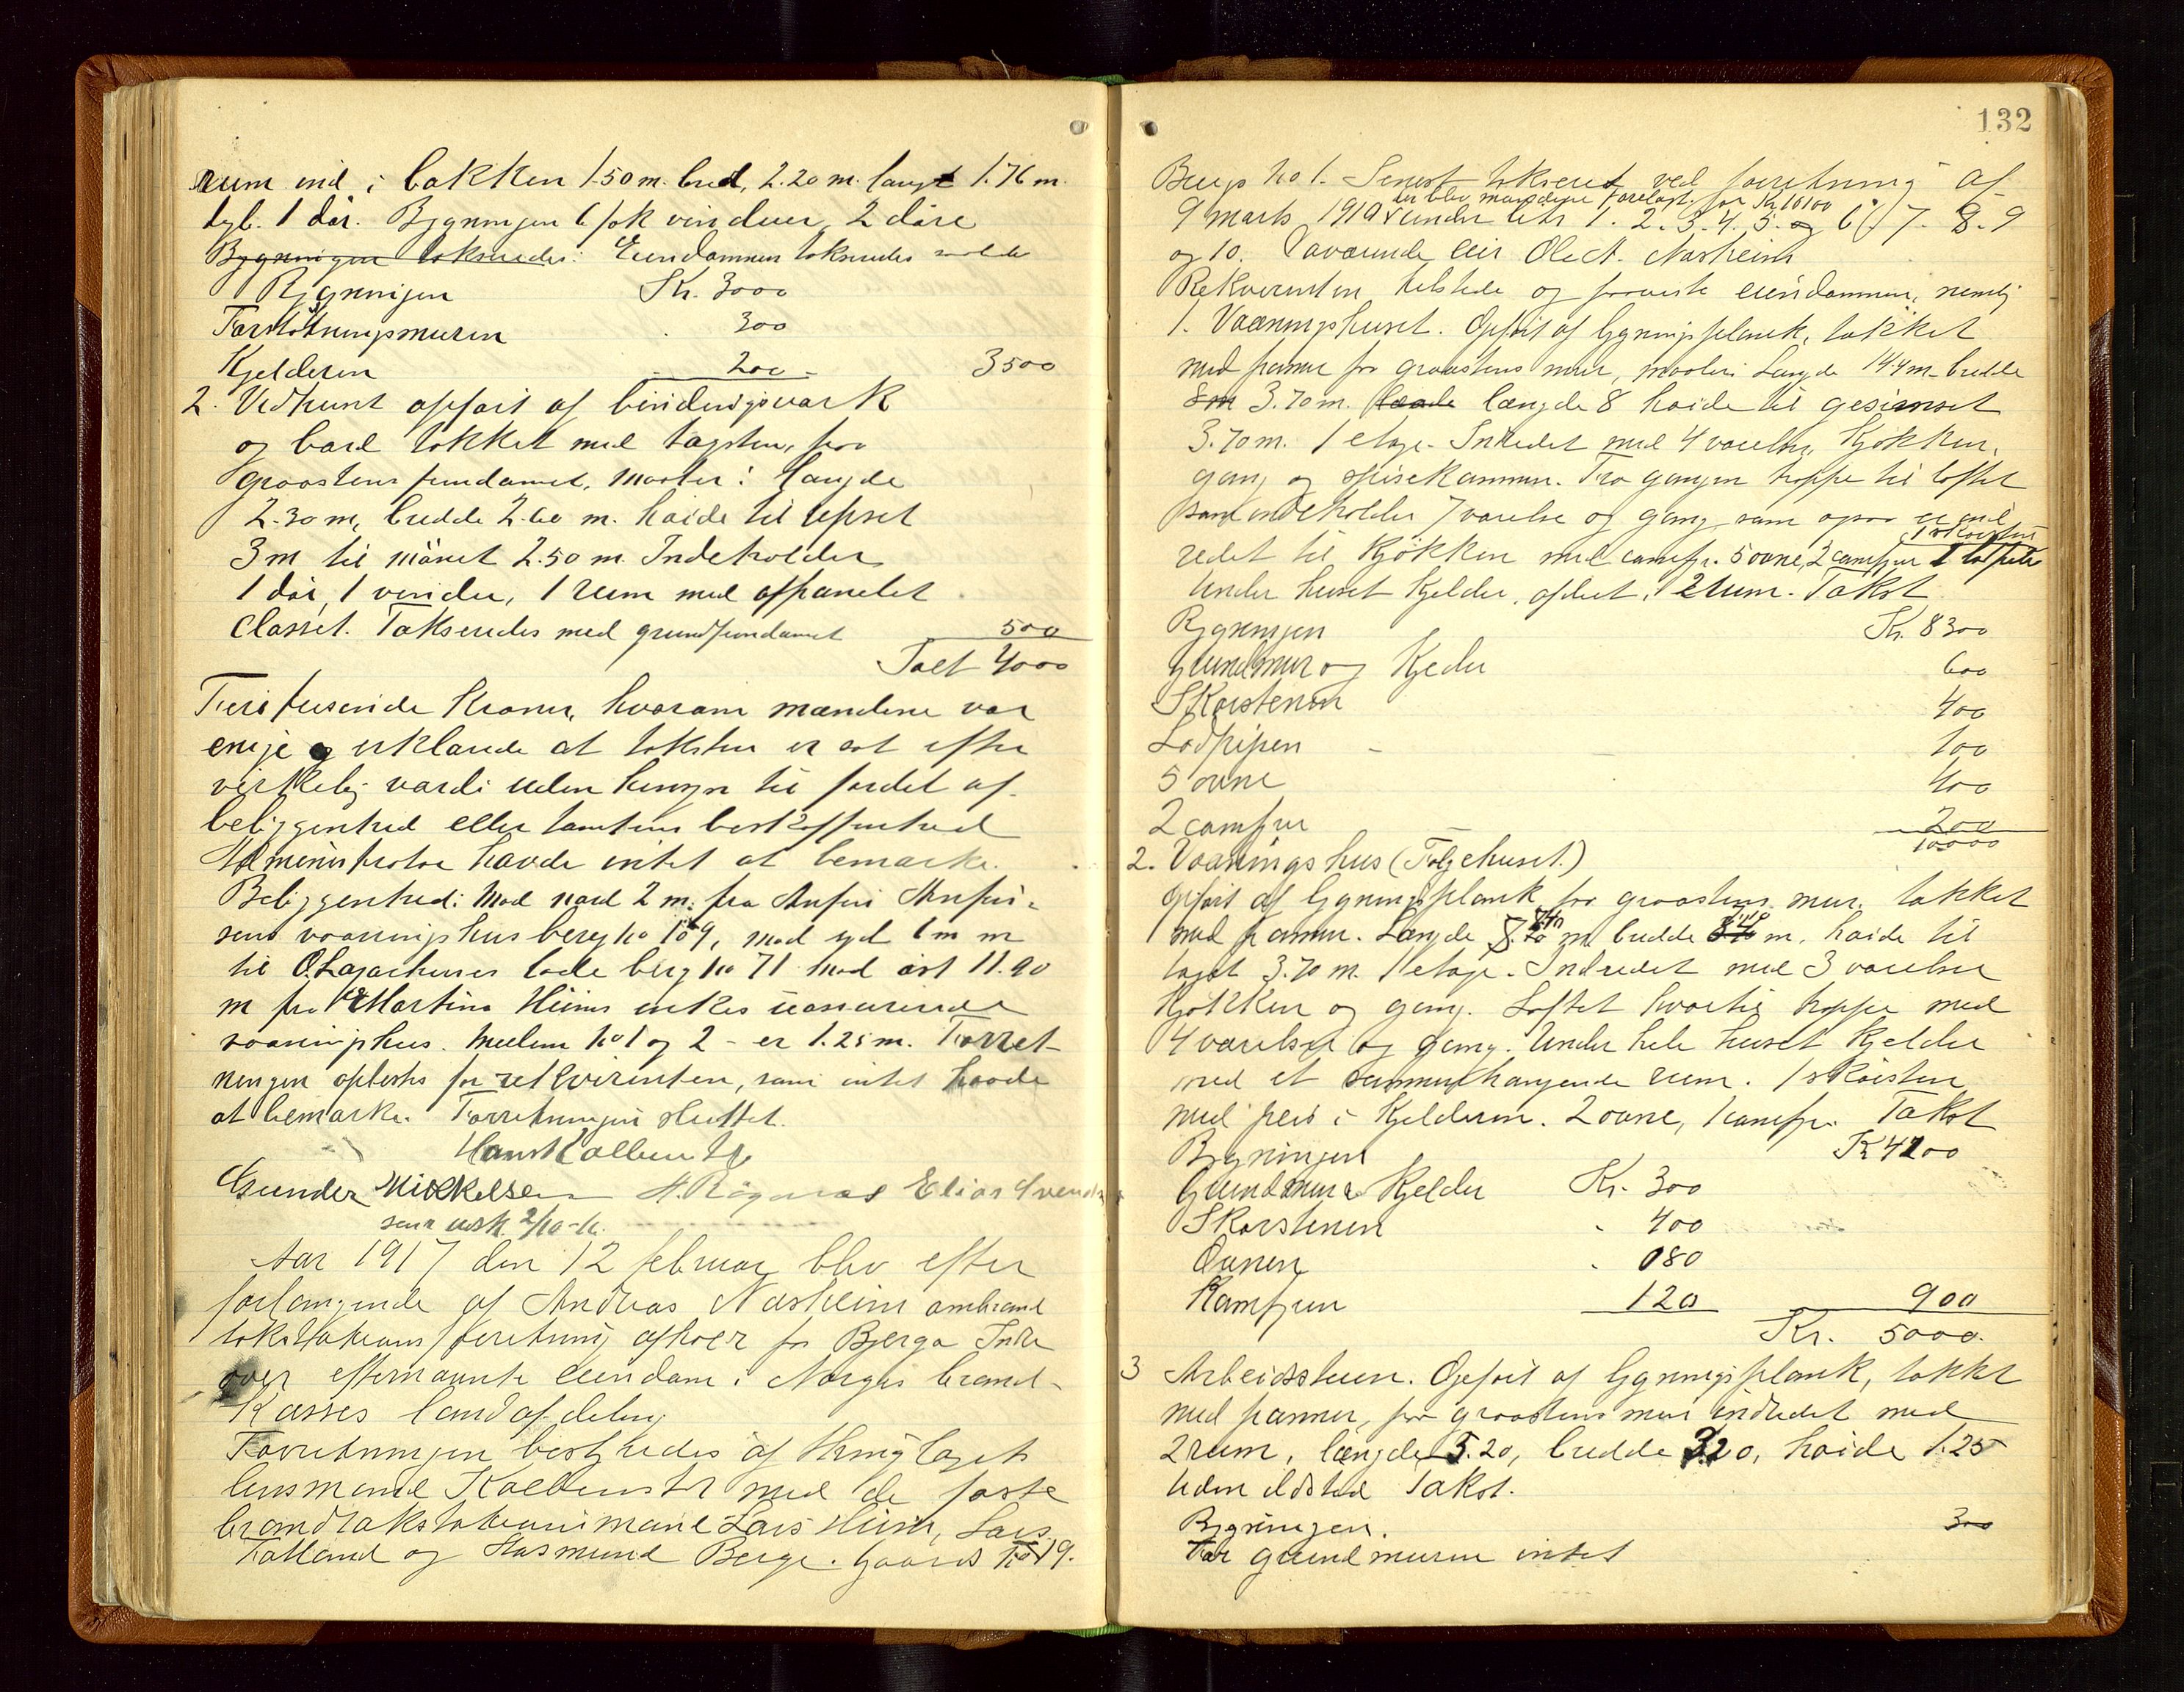 rum ind i bakken 1.50 m. bred, 2.20 m. langt 1.76 m.
dyb. 1 dør. Bygningen 6 fok vinduer, 2 døre
Bygningen takseredes: Eiendommen takseredes saaledes
Bygningen Kr. 3000
Forstøtningsmuren 300
Kjelderen 200 - 3500
2. Vedhuset opført af bindingsverk
og bord tækket med tagsten, paa
graastens fundament. Maaler: længde
2.30 m, bredde 2.60 m. høide til upset
3 m til mønet 2.50 m. Indeholder
1 dør, 1 vindu, 1 rum med afpanelet
Closset. Takseredes med grundfundament 500
Ialt 4000
Fire tusinde kroner, hvorom mændene var
enige og erklærede at taksten er sat efter
virkelig værdi uden hensyn til fordel af
beliggenhed eller tomtens beskaffenhed
Administrator havde intet at bemærke.
Beliggenhed: Mod nord 2 m. fra Anfin Anfin-
sens vaaningshus berg no 109, mod syd 6 m m
til O. Lazachuses lade berg no 71 mod øst 11.90
m fra Martina Heims enkes uassurerede
vaaningshus. Mellem no 1 og 2 - er 1.25 m. Forret-
ningen oplæstes for rekvirenten, som intet havde
at bemærke. Forretningen sluttet.
Hans Kallbenstvedt
Gunder Mikkelsen H. Rögenæs Elias Svendsen
sendt udsk 2/10-16.
Aar 1917 den 12 februar blev efter
forlangende af Andreas Næsheim ombrand
takstationsforretning afholdt paa Bjerga Indre
over efternævnte eiendom i Norges brand-
kasses landafdeling
Forretningen bestyredes af Hensmand
lensmand Kallbenstvedt med de faste
brandtakstationsmænd Lars Heim, Lars
Tatland og Aasmund Berge. Gaards no 19.
132
Brugs no 1. Senest takseret ved forretning af
9 marts 1910 under litr 1. 2. 3. 4. 5. og 6 7. 8. 9
der blev mændene forelagt. for Kr 10100
og 10. Daværende eier Ole A. Næsheim
Rekvirenten tilstede og foreviste eiendommen, nemlig
1. Vaaningshuset. Opført af bygningsplank, tækket
med panner paa graastens mur, maaler: Længde 14.4 m. bredde
8 m 3.70 m. længde 8 høide til gesimset
3.70 m. 1 etage. Indredet med 4 værelser, kjøkken,
gang og spisekammer. Fra gangen trappe til loftet
som indeholder 7 værelse og gang, som ogsaa er ind
redet til kjøkken med comfyr. 5 ovne, 2 comfyrer 1 skorsten 1 lodpibe
Under huset kjelder, afdelt i 2 rum. Takst
Bygningen Kr. 8300
Grundmur og Kjelder 600
Skorstenen 400
Lodpipen - 100
5 ovne 400
2 comfyr 200
10000
2. Vaanings hus (Følgehuset.)
Opført af bygningsplank paa graastens mur. takket
med panner. Længde 8.70 m bredde m. høide til
taget 3.70 m. 1 etage. Indredet med 3 værelser
Kjøkken og gang. Loftet hvortil trappe med
4 værelser og gang. Under hele huset Kjelder
med et sammenhængende rum. 1 skorsten
med peis i Kjelderen. 2 ovne, 1 comfyr. Takst
Bygningen Kr 4100
Grundmur & Kjelder Kr. 300
Skorstenen 400
Ovnen 080
Komfyren 120 900
Kr. 5000.
3 Arbeidsstuen. Opført af bygningsplank, takket
med panner, paa graastens mur indredet med
2 rum, længde 5.20, bredde 3.20, høide 1.25
uden ildsted Takst.
Bygningen. 300
For grundmuren intet